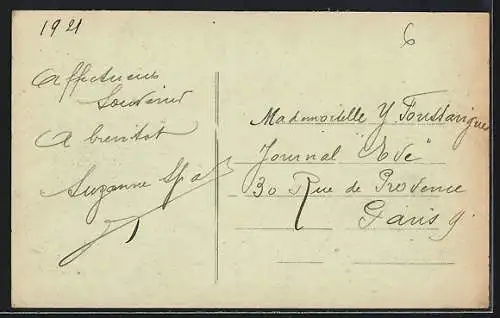 1921
6
Affectueux
Souvenir
A bientot
Suzanne
Mademoiselle Y.
Journal "Eve"
30 Rue de Provence
Paris 9.